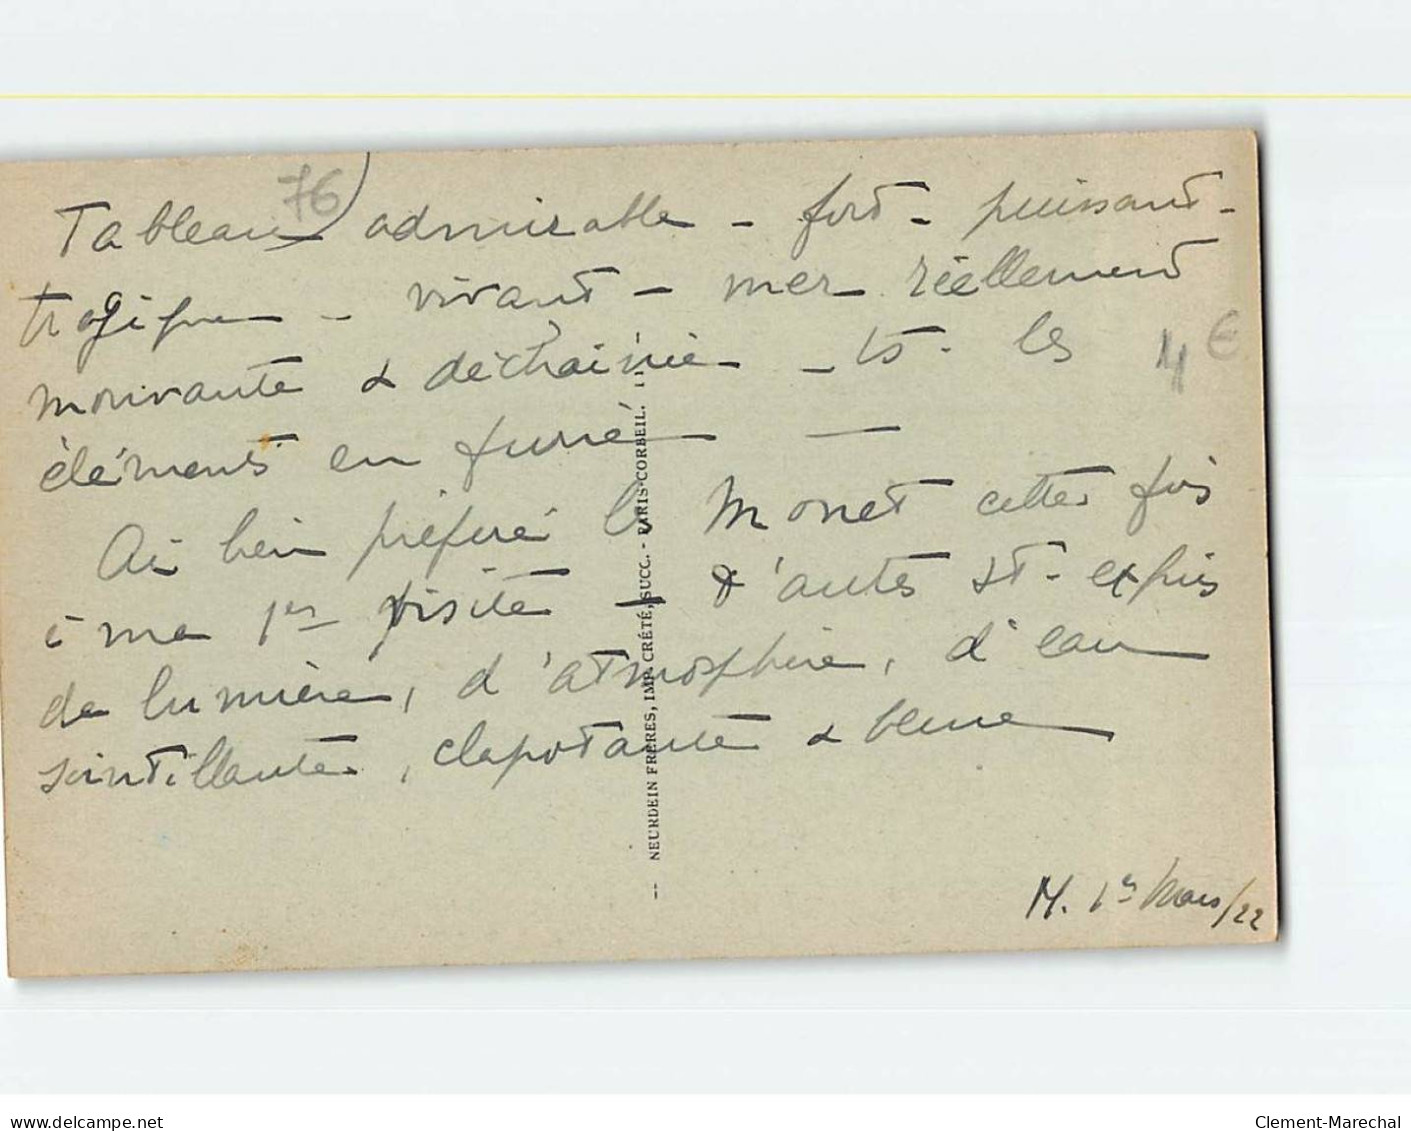 76
Tableau admirable - fort - puissant -
tragique - vivant - mer réellement
mouvante & déchainée - ts. les
4 €
éléments en furie —
Ai bien préféré le Monet cette fois
à ma 1re visite - & d'autres st. épris
de lumière, d'atmosphère, d'eau
scintillante, clapotante & bleue
M. 1er Mars/22
-- NEURDEIN FRÈRES, IMP. CRÉTÉ, SUCC. - PARIS-CORBEIL.
www.delcampe.net
Clement-Marechal